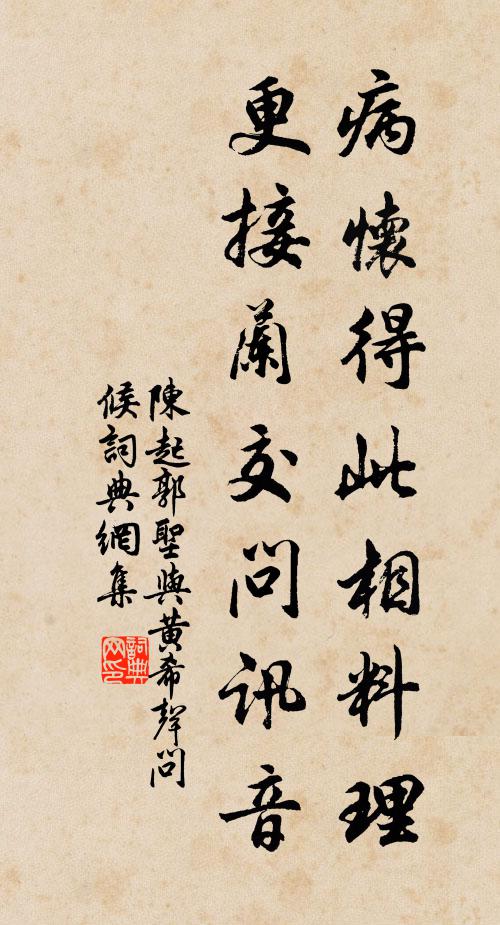 病懷得此相料理
更接蘭交問訊音
陳起郭聖與黃希聲問
候詞典網集
詞典
网印